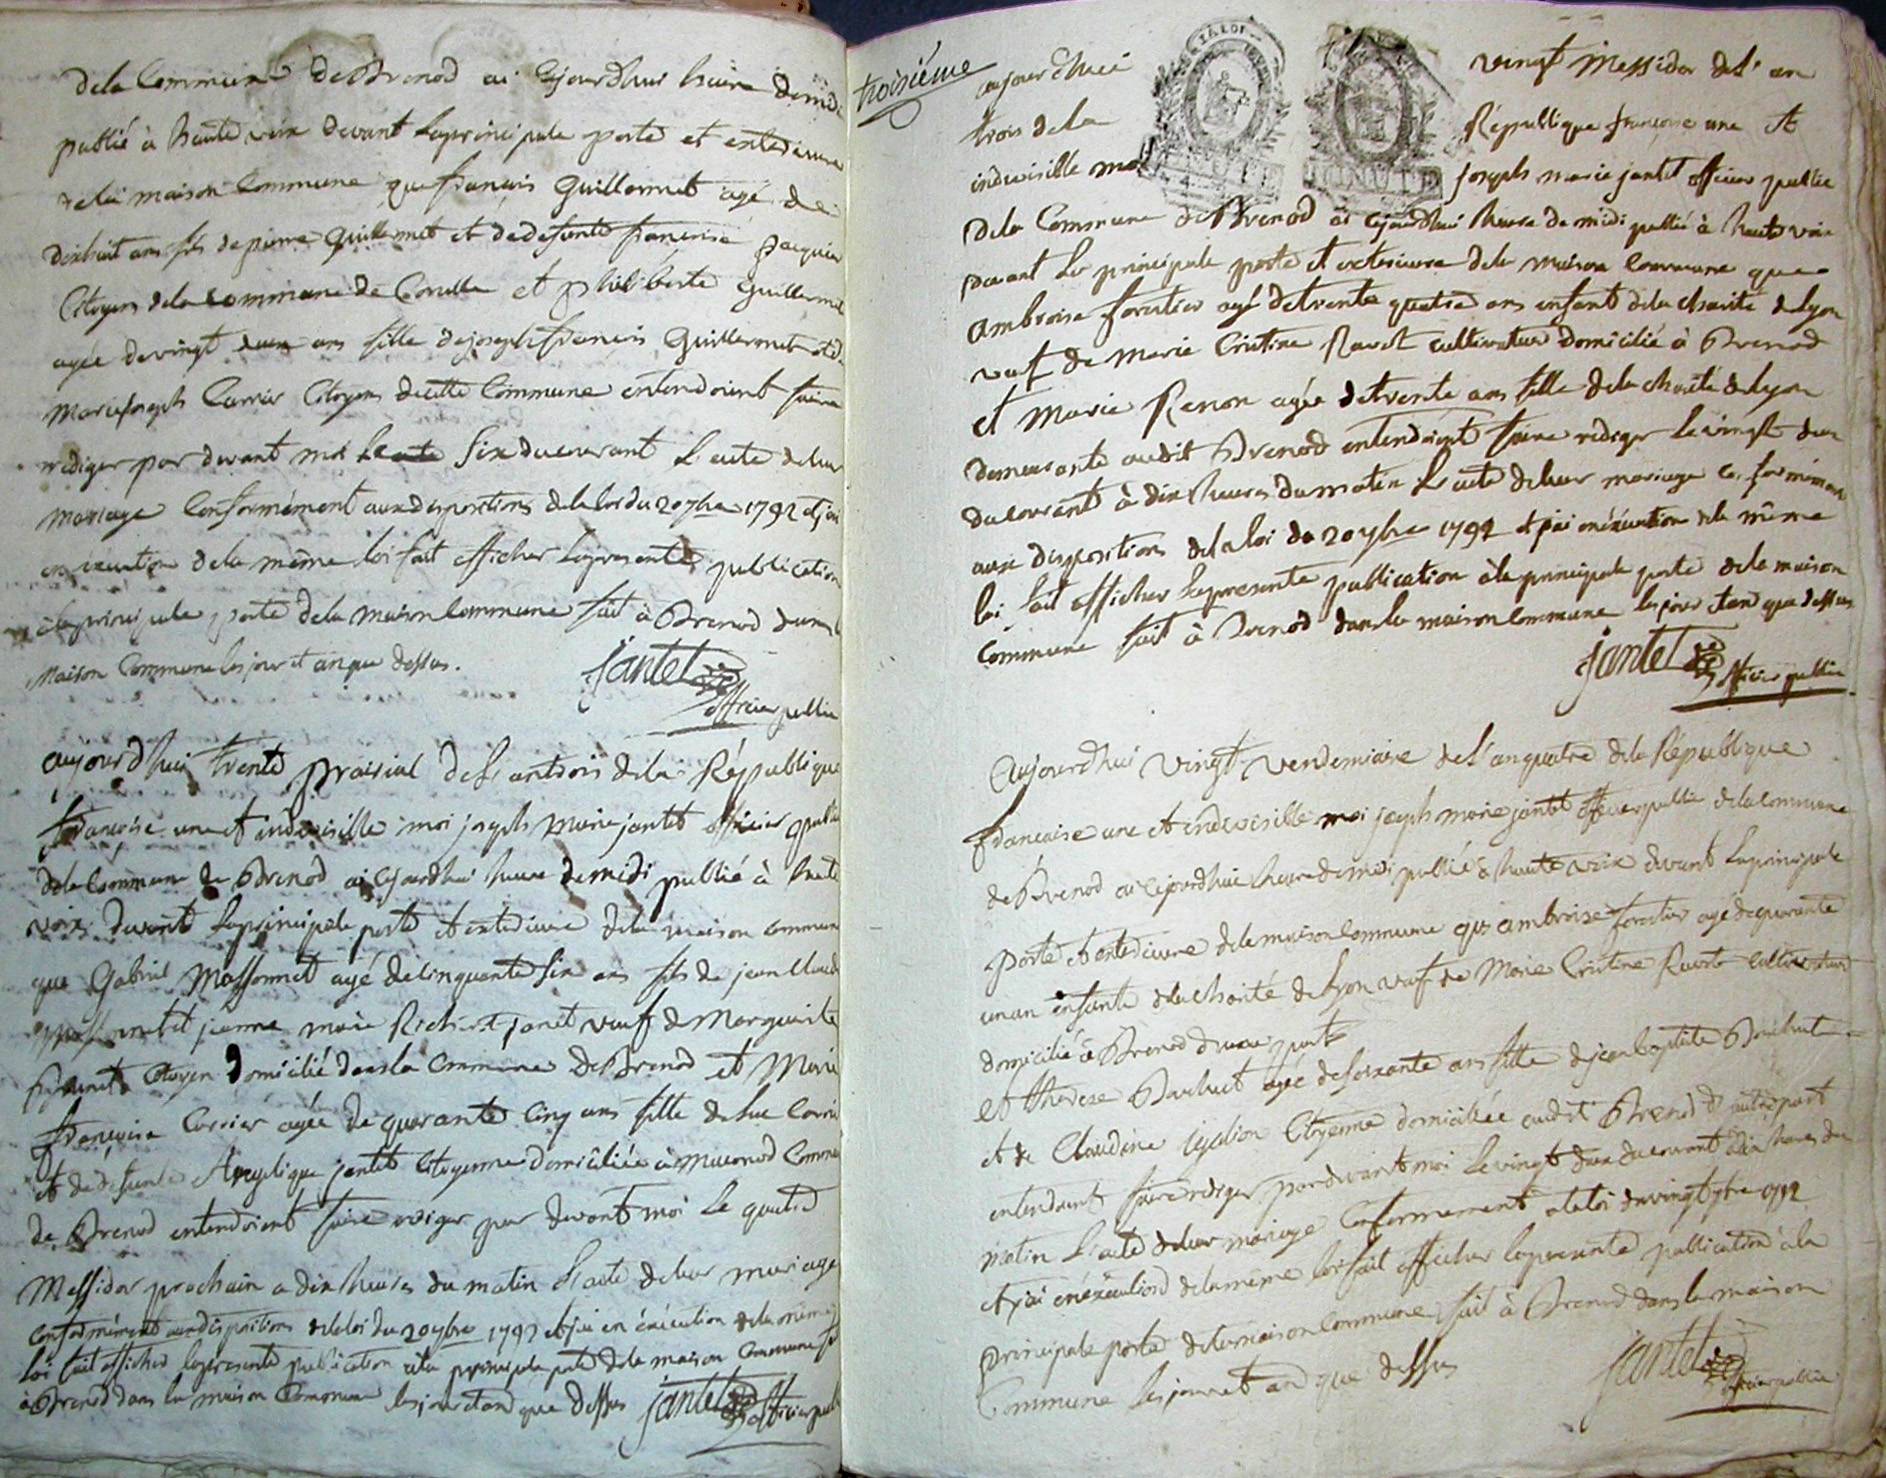 de la Commune de Brenod ai cejourdhui heure de midi
publié à haute voix devant la principale porte et exterieure
de la maison Commune que francois Guillermet agé de
dixhuit ans fils de pierre Guillermet et de defunte francoise
Citoyens de la Commune de Corcelle et philiberte Guillermet
agée de vingt deux ans fille de joseph francois Guillermet et de
Marie joseph Carrier Citoyens de cette Commune entendoient faire
rediger par devant moi le six du courant L'acte de leur
Mariage Conformément aux dispositions de la loi du 20 7bre 1792 et j'ai
en éxécution de la même loi fait afficher la presente publication
à la principale porte de la maison Commune fait à Brenod dans la
Maison Commune les jour et an que dessus.
jantet
officier public
aujourdhui trente prairial de L'an trois de la République
francoise une et indivisible moi joseph marie jantet officier public
de la Commune de Brenod ai cejourdhui heure de midi publié à haute
voix devant la principale porte et exterieure de la maison commune
que Gabriel Massonnet agé de cinquante six ans fils de jean Claude
Massonnet et jeanne marie Richard janet veuf de Marguerite
Citoyen domicilié dans la Commune de Brenod et Marie
francoise Carrier agée de quarante cinq ans fille de Luc Carrier
et de defunte Angelique jantet Citoyenne domiciliée à Macconod Commune
de Brenod entendoient faire rediger par devant moi le quatre
Messidor prochain a dix heures du matin L'acte de leur mariage
Conformément aux dispositions de la loi du 20 7bre 1792 et j'ai en éxécution de la même
loi fait afficher la presente publication à la principale porte de la maison Commune fait
à Brenod dans la maison Commune les jour et an que dessus jantet officier public
troisiéme
aujourdhui vingt Messidor de L'an
trois de la République françoise une et
indivisible moi joseph marie jantet officier public
de la Commune de Brenod ai cejourdhui heure de midi publié à haute voix
devant la principale porte et exterieure de la maison Commune que
ambroise forestier agé de trente quatre ans enfant de la charité de Lyon
veuf de Marie Cristine Ravet cultivateur domicilié à Brenod
et Marie Renon agée de trente ans fille de la charité de Lyon
demeurante audit Brenod entendoient faire rediger le vingt deux
du courant à dix heures du matin L'acte de leur mariage conformément
aux dispositions de la loi du 20 7bre 1792 et j'ai en éxécution de la même
loi fait afficher la presente publication à la principale porte de la maison
Commune fait à Brenod dans la maison Commune les jour et an que dessus
jantet officier public
Aujourdhui vingt vendemiaire de L'an quatre de la République
francaise une et indivisible moi joseph marie jantet officier public de la commune
de Brenod ai cejourdhui heure de midi publié à haute voix devant la principale
porte et exterieure de la maison Commune que ambroise forestier agé de quarante
un an enfant de la charité de Lyon veuf de Marie Cristine cultivateur
domicilié à Brenod d'une part
et therese Barbuet agée de soixante ans fille de jean baptiste Barbuet
et de Claudine Citoyenne domiciliée audit Brenod d'autre part
entendoient faire rediger par devant moi le vingt deux du courant à dix heures du
matin L'acte de leur mariage Conformement a la loi du vingt 7bre 1792
et j'ai en éxécution de la même loi fait afficher la presente publication à la
principale porte de la maison Commune fait à Brenod dans la maison
Commune les jour et an que dessus
jantet
officier public